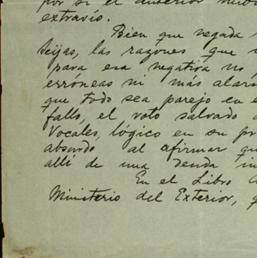 por si el anterior
extravío.
Bien que negada
hijas, las razones que
para esa negativa no
erróneas ni más alar
que todo sea parejo en e
fallo, el voto salvado
Vocales, lógico en su pr
absurdo al afirmar qu
allá de una senda in
En el Libro
Ministerio del Exterior, q